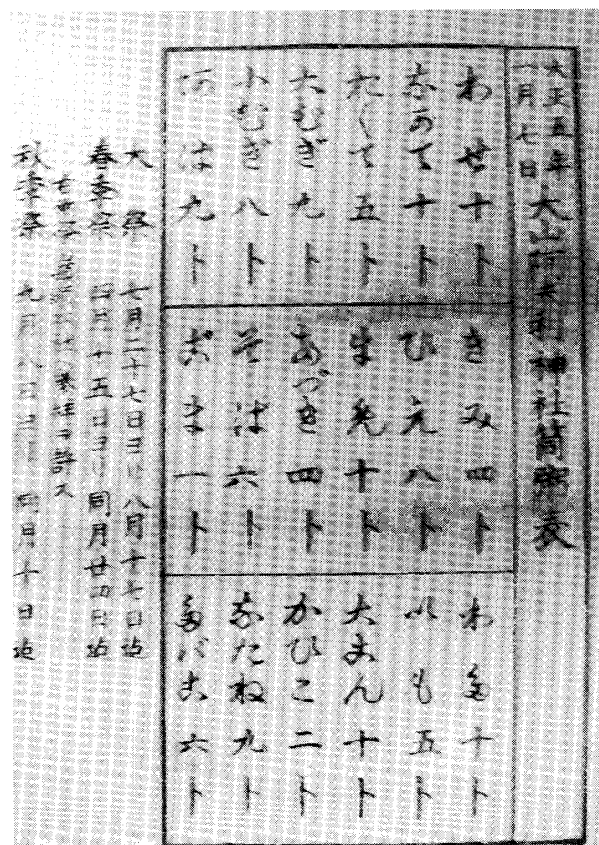 大正五年
一月七日
大山阿夫利神社筒粥表
わせ十ト
なかて十ト
おくて五ト
大むぎ九ト
小むぎ八ト
あは九ト
きみ四ト
ひえ八ト
まめ十ト
あづき四ト
そば六ト
ごま一ト
わた十ト
いも五ト
大こん十ト
かひこ二ト
なたね九ト
たばこ六ト
大祭 七月二十七日ヨリ 八月十七日迄
春季祭 四月十五日ヨリ 同月廿四日迄
秋季祭 九月八日ヨリ 同月十日迄